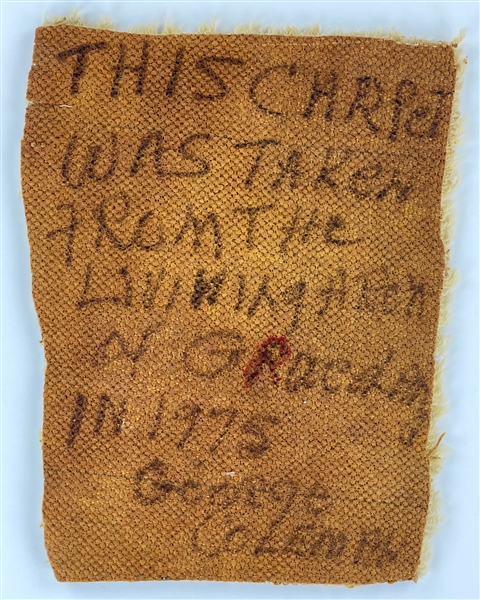 THIS CARPet
WAS TAKEN
FROM THE
LiviNing
GRaceLAn
IN 1975
George
COLEMAN